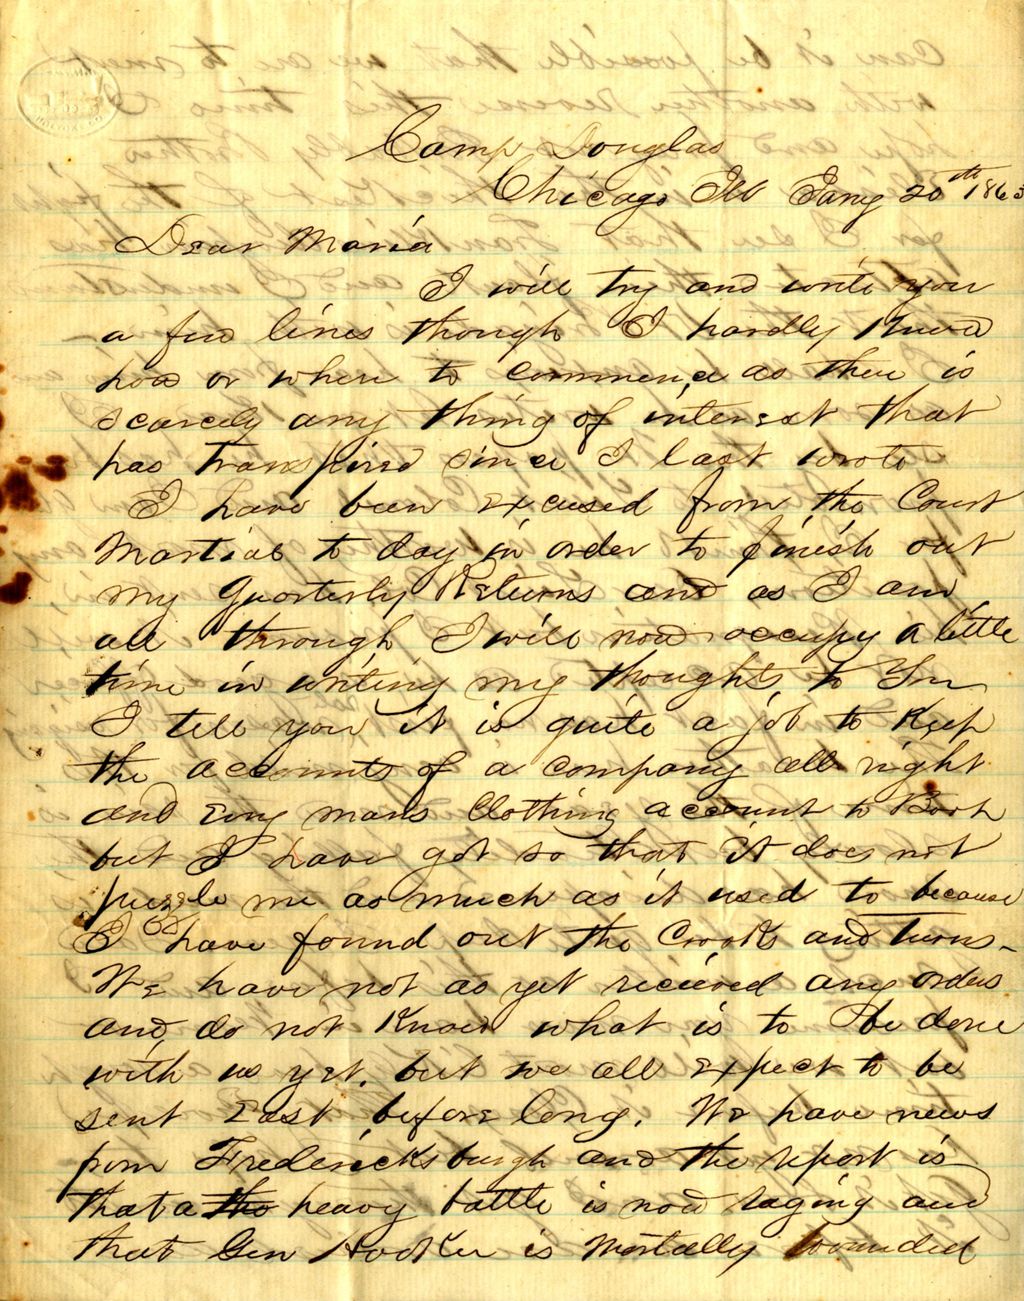 Camp Douglas
Chicago Ill Jany 20th 1863
Dear Maria
I will try and write you
a few lines though I hardly know
how or where to commence as there is
scarcely any thing of interest that
has transpired since I last wrote
I have been excused from the Court
Martial to day in order to finish out
my Quarterly Returns and as I am
all through I will now occupy a little
time in writing my thoughts to You
I tell you it is quite a job to Keep
the accounts of a company all right
and Evry mans Clothing account to Boot
but I have got so that it does not
puzzle me as much as it used to because
I have found out the Crooks and turns–
We have not as yet recieved any orders
and do not Know what is to be done
with us yet. but we all expect to be
sent East before long. We have news
from Fredericksburgh and the report is
that a the heavy battle is now raging and
that Gen Hooker is Mortally wounded